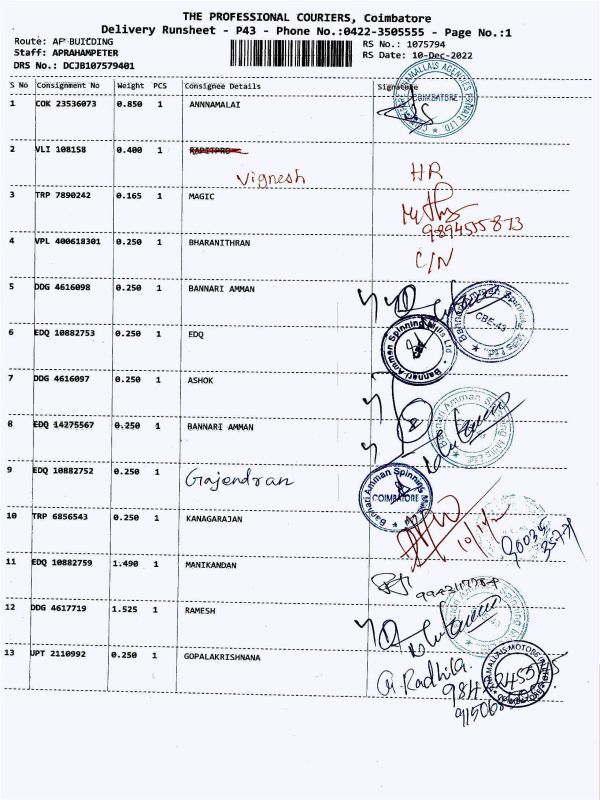 THE PROFESSIONAL COURIERS, Coimbatore
Delivery Runsheet - P43 - Phone No.:0422-3505555 - Page No.:1
Route: AF BUILDING
RS No.: 1075794
Staff: APRAHAMPETER
RS Date: 10-Dec-2022
DRS No.: DCJB107579401
S No Consignment No Weight PCS Consignee Details Signature
1 COK 23536073 0.850 1 ANNNAMALAI
COIMBATORE
2 VLI 108158 0.400 1 RAPITPRO
Vignesh HR
3 TRP 7890242 0.165 1 MAGIC
9894555873
4 VPL 400618301 0.250 1 BHARANITHRAN
C/N
5 DDG 4616098 0.250 1 BANNARI AMMAN
Bannari Amman Spinning Mills Ltd.
CBE-43
6 EDQ 10882753 0.250 1 EDQ
Bannari Amman Spinning Mills Ltd
7 DDG 4616097 0.250 1 ASHOK
8 EDQ 14275567 0.250 1 BANNARI AMMAN
Bannari Amman Spinning Mills Ltd
9 EDQ 10882752 0.250 1 Gajendran
Bannari Amman Spinning Mills Ltd
COIMBATORE
10 TRP 6856543 0.250 1 KANAGARAJAN
10/12
11 EDQ 10882759 1.490 1 MANIKANDAN
12 DDG 4617719 1.525 1 RAMESH
13 UPT 2110992 0.250 1 GOPALAKRISHNANA
Radhila.